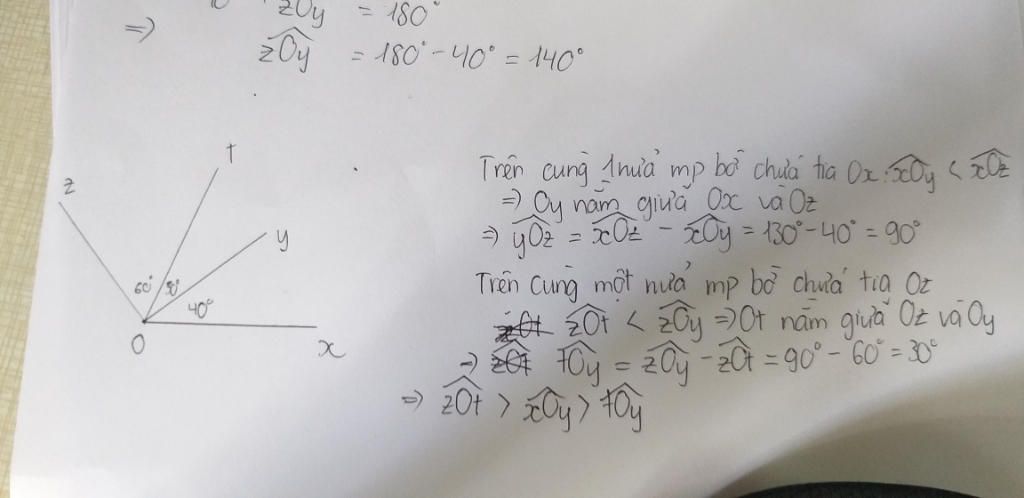 zOy = 180°
=> zOy = 180° - 40° = 140°
z
t
y
60°
40°
O
x
Trên cùng 1 nửa mp bờ chứa tia Ox: xOy < xOz
=> Oy nằm giữa Ox và Oz
=> yOz = xOz - xOy = 130° - 40° = 90°
Trên cùng một nửa mp bờ chứa tia Oz
zOt < zOy => Ot nằm giữa Oz và Oy
=> tOy = zOy - zOt = 90° - 60° = 30°
=> zOt > xOy > tOy